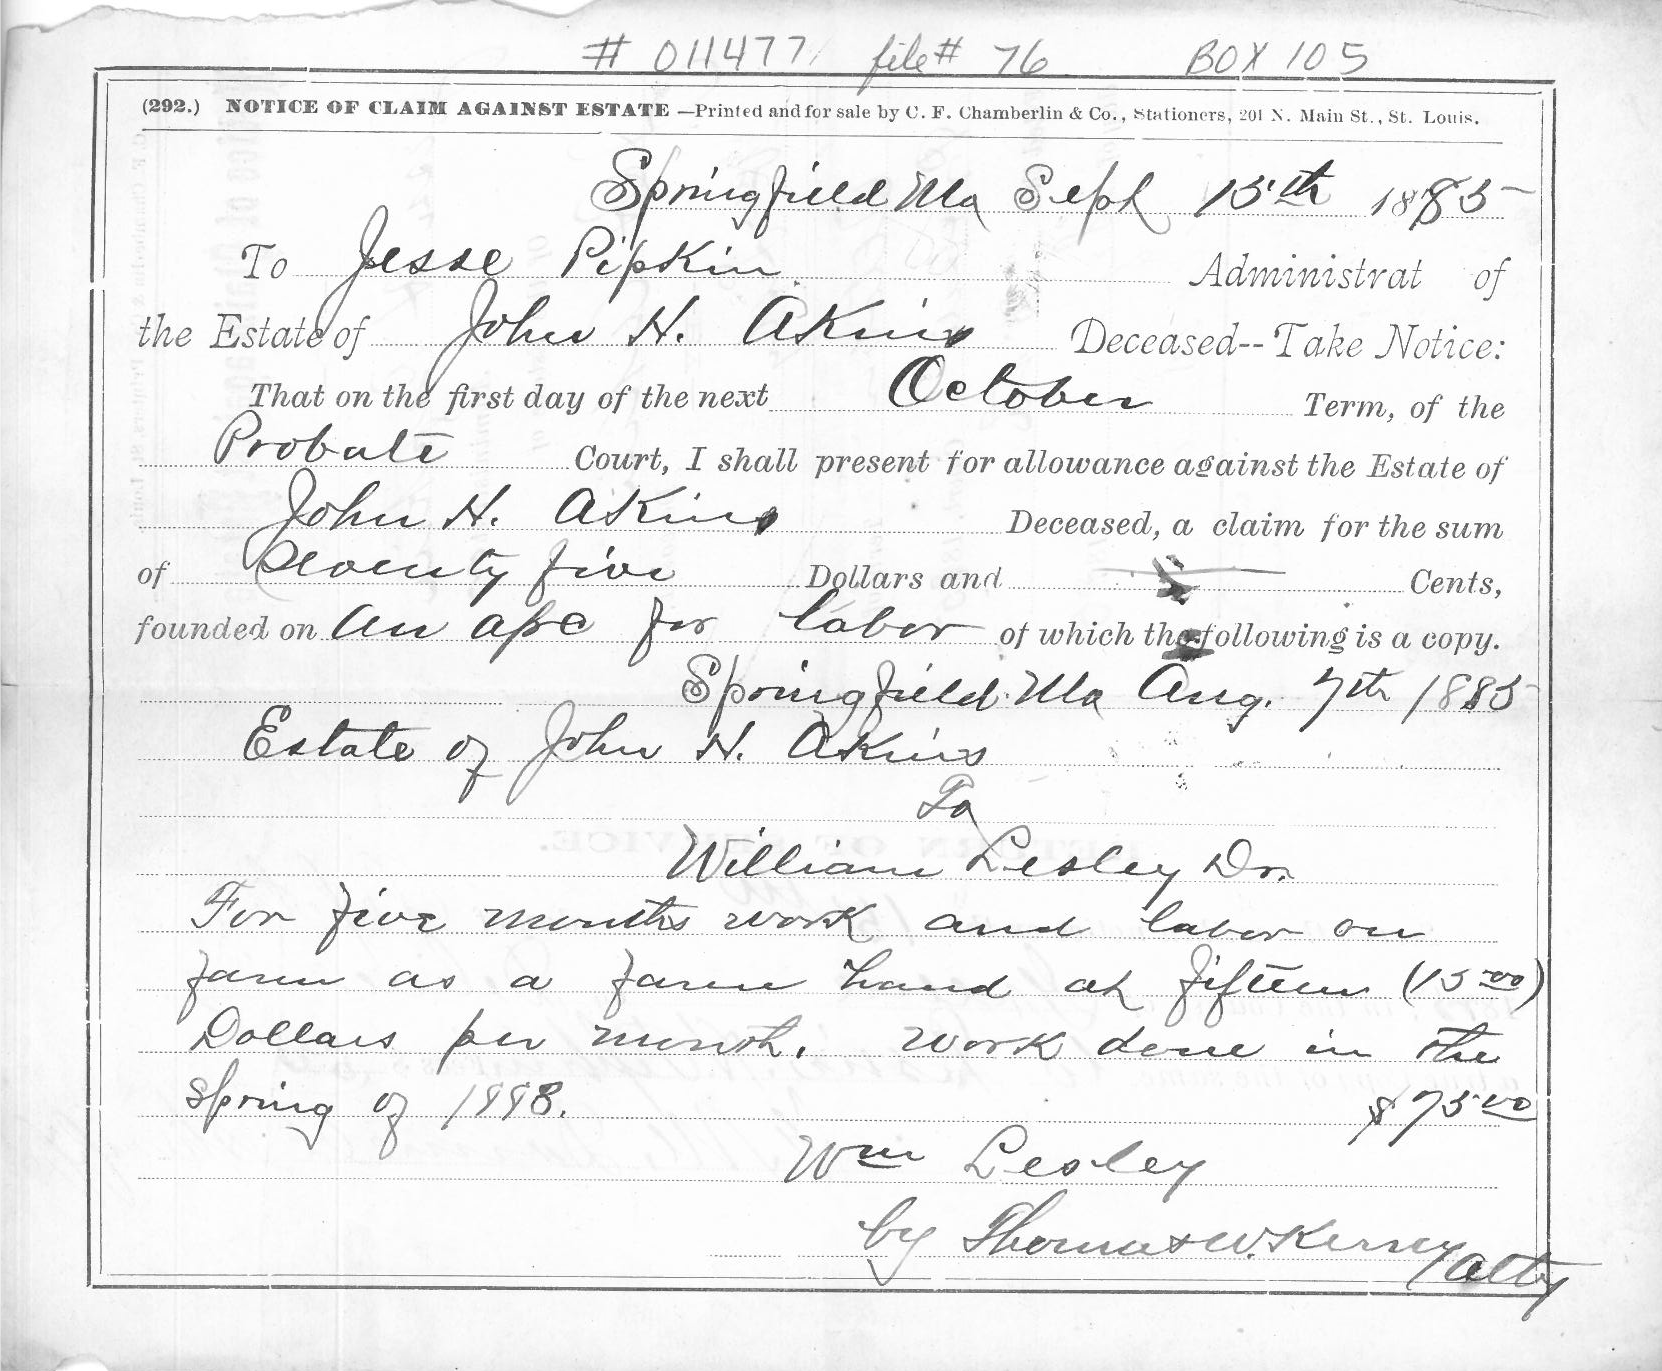 # 011477 file# 76 BOX 105
(292.) NOTICE OF CLAIM AGAINST ESTATE —Printed and for sale by C. F. Chamberlin & Co., Stationers, 201 N. Main St., St. Louis.
Springfield Mo Sept 15th 1885
To Jesse Pipkin Administrat of
the Estate of John H. Akins Deceased--Take Notice:
That on the first day of the next October Term, of the
Probate Court, I shall present for allowance against the Estate of
John H. Akins Deceased, a claim for the sum
of Seventy five Dollars and Cents,
founded on an a/c for labor of which the following is a copy.
Springfield Mo Aug. 7th 1885
Estate of John H. Akins
To
William Lesley Dr.
For five months work and labor on
farm as a farm hand at fifteen (15 00)
Dollars per month. Work done in the
spring of $75 00
Wm Lesley
by Thomas W. Kersey
Atty